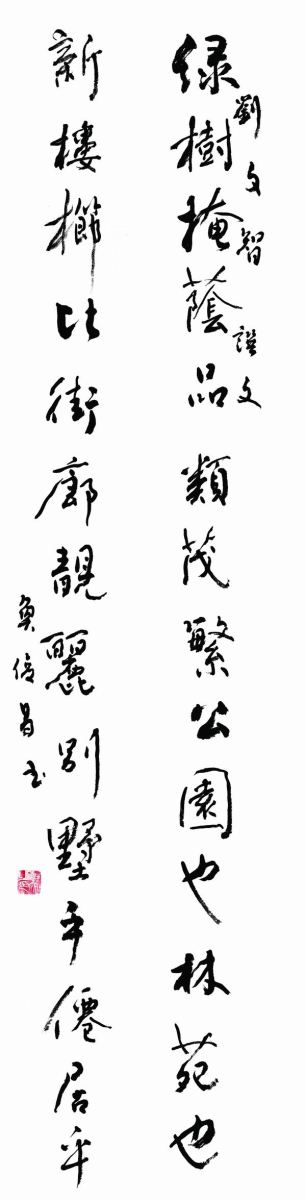 劉文智譔文
綠樹掩蔭品類茂繁公園也林苑也
新樓櫛比街廊靚麗別墅乎僊居乎
昌书